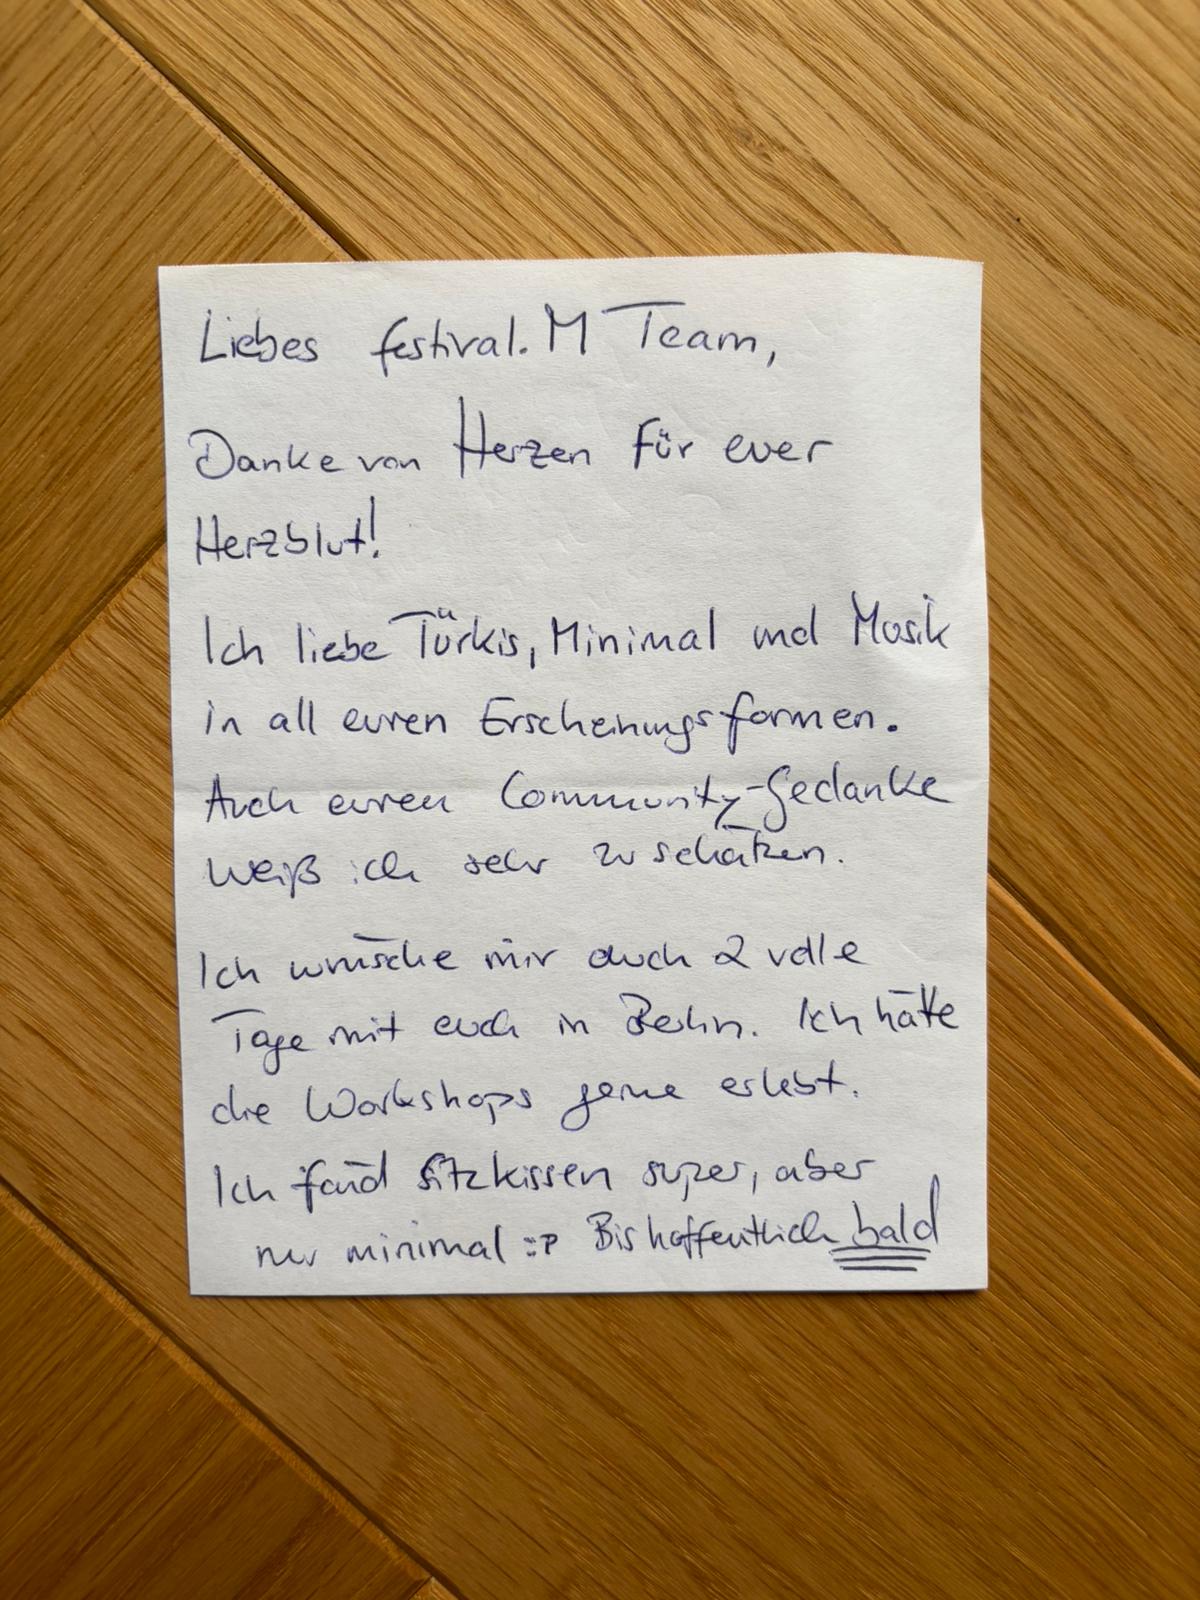 Liebes festival.M Team,
Danke von Herzen für euer
Herzblut!
Ich liebe Türkis, Minimal und Musik
in all euren Erscheinungsformen.
Auch euren Community-Gedanke
weiß ich sehr zu schätzen.
Ich wünsche mir auch 2 volle
Tage mit euch in Berlin. Ich hätte
die Workshops gerne erlebt.
Ich fand Sitzkissen super, aber
nur minimal ::P Bis hoffentlich bald